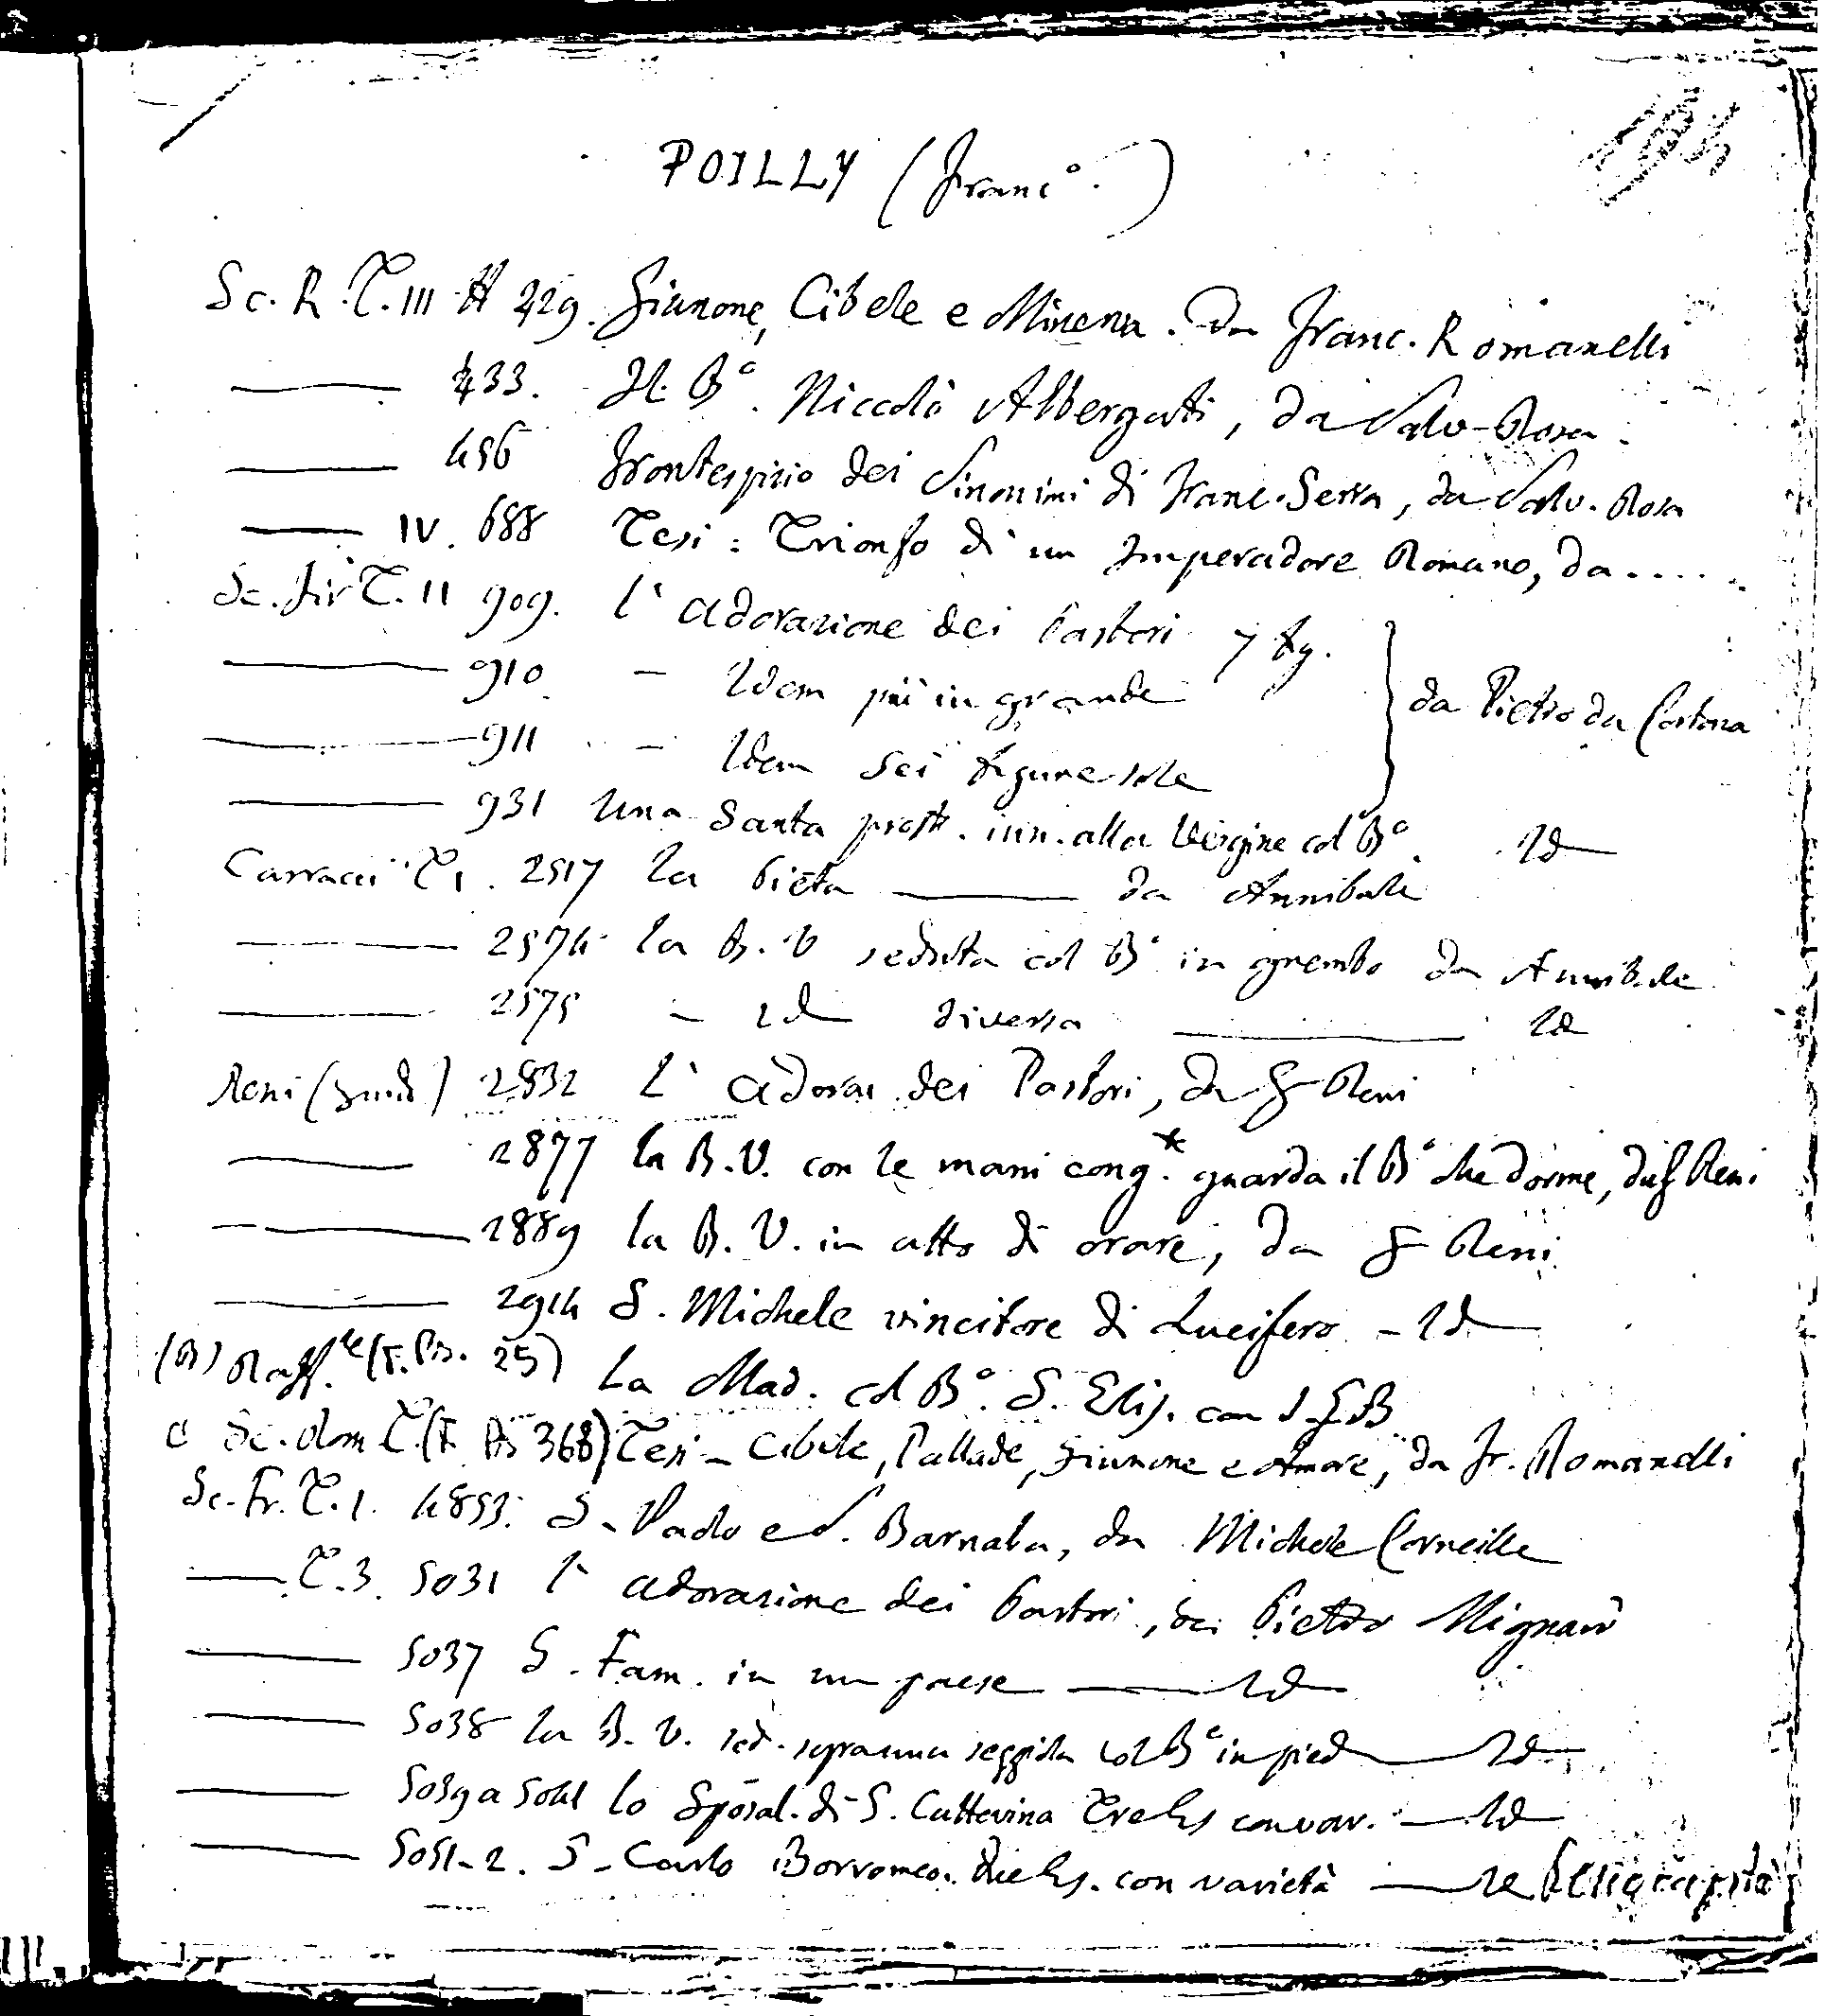 POILLY (Franc°.)
Sc. R. T. III 429. Giunone, Cibele e Minerva. Da Franc. Romanelli
——— 433. Il B°. Niccolò Albergati, da Salv. Rosa.
——— 456 Frontespizio dei Sinonimi di Franc. Serra, da Salv. Rosa
——— IV. 688 Tesi: Trionfo di un Imperadore Romano, da.....
Sc. fir T. II 909. l'adorazione dei Pastori 7 fig.
——— 910. — Idem più in grande
——— 911 — Idem sei figure sole
} da Pietro da Cortona
——— 931 Una Santa prost. inn. alla Vergine col B°. Id
Carracci T 1. 2517 La Pietà ——— da Annibale
——— 2574 la B. V seduta col B° in grembo da Annibale
——— 2575 — Id diversa ——— Id
Reni (Guid) 2832 L'adoraz. dei Pastori, da G Reni
——— 2877 la B. V. con le mani cong.te guarda il B° che dorme, da G Reni
——— 2889 la B. V. in atto di orare, da G Reni
——— 2914 S. Michele vincitore di Lucifero — Id
(B) Raff.le (F. Ps. 25) La Mad. col B°. S. Elis. con S. G B
C Sc. Rom T. (F. Ps 368) Tesi — Cibele, Pallade, Giunone e Amore, da Fr. Romanelli
Sc. Fr. T. 1. 4853. S. Paolo e S. Barnaba, da Michele Corneille
——— T. 3. 5031 l'adorazione dei Pastori, da Pietro Mignard
——— 5037 S. Fam. in un paese ——— Id
——— 5038 la B. V. sed. sopra una seggiola col B° in pied ——— Id
——— 5039 a 5041 lo Sposal. di S. Catterina Tre Es con var. — Id
——— 5051-2. S. Carlo Borromeo. due Es. con varietà ———